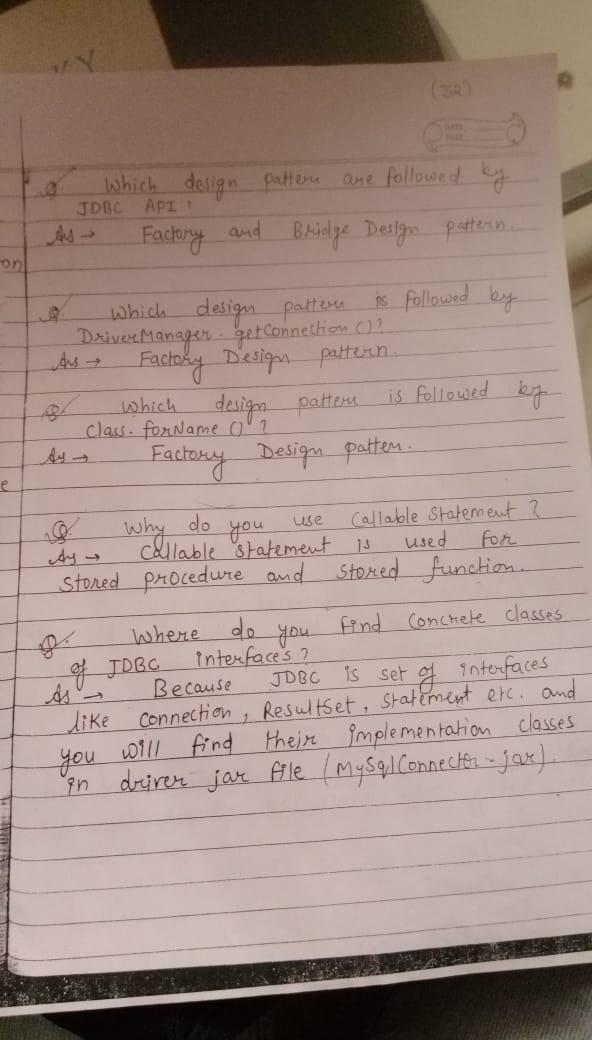 (32)
DATE
PAGE
Q. Which design pattern are followed by
JDBC API?
Ans → Factory and Bridge Design pattern.
on
Q. Which design pattern is followed by
DriverManager.getConnection()?
Ans → Factory Design pattern.
Q. Which design pattern is followed by
Class.forName()?
Ans → Factory Design pattern.
e
Q. Why do you use Callable Statement?
Ans → Callable Statement is used for
stored procedure and stored function.
Q. Where do you find concrete classes
of JDBC interfaces?
Ans → Because JDBC is set of interfaces
like connection, ResultSet, Statement etc. and
you will find their implementation classes
in driver jar file (MySqlConnector-jar).